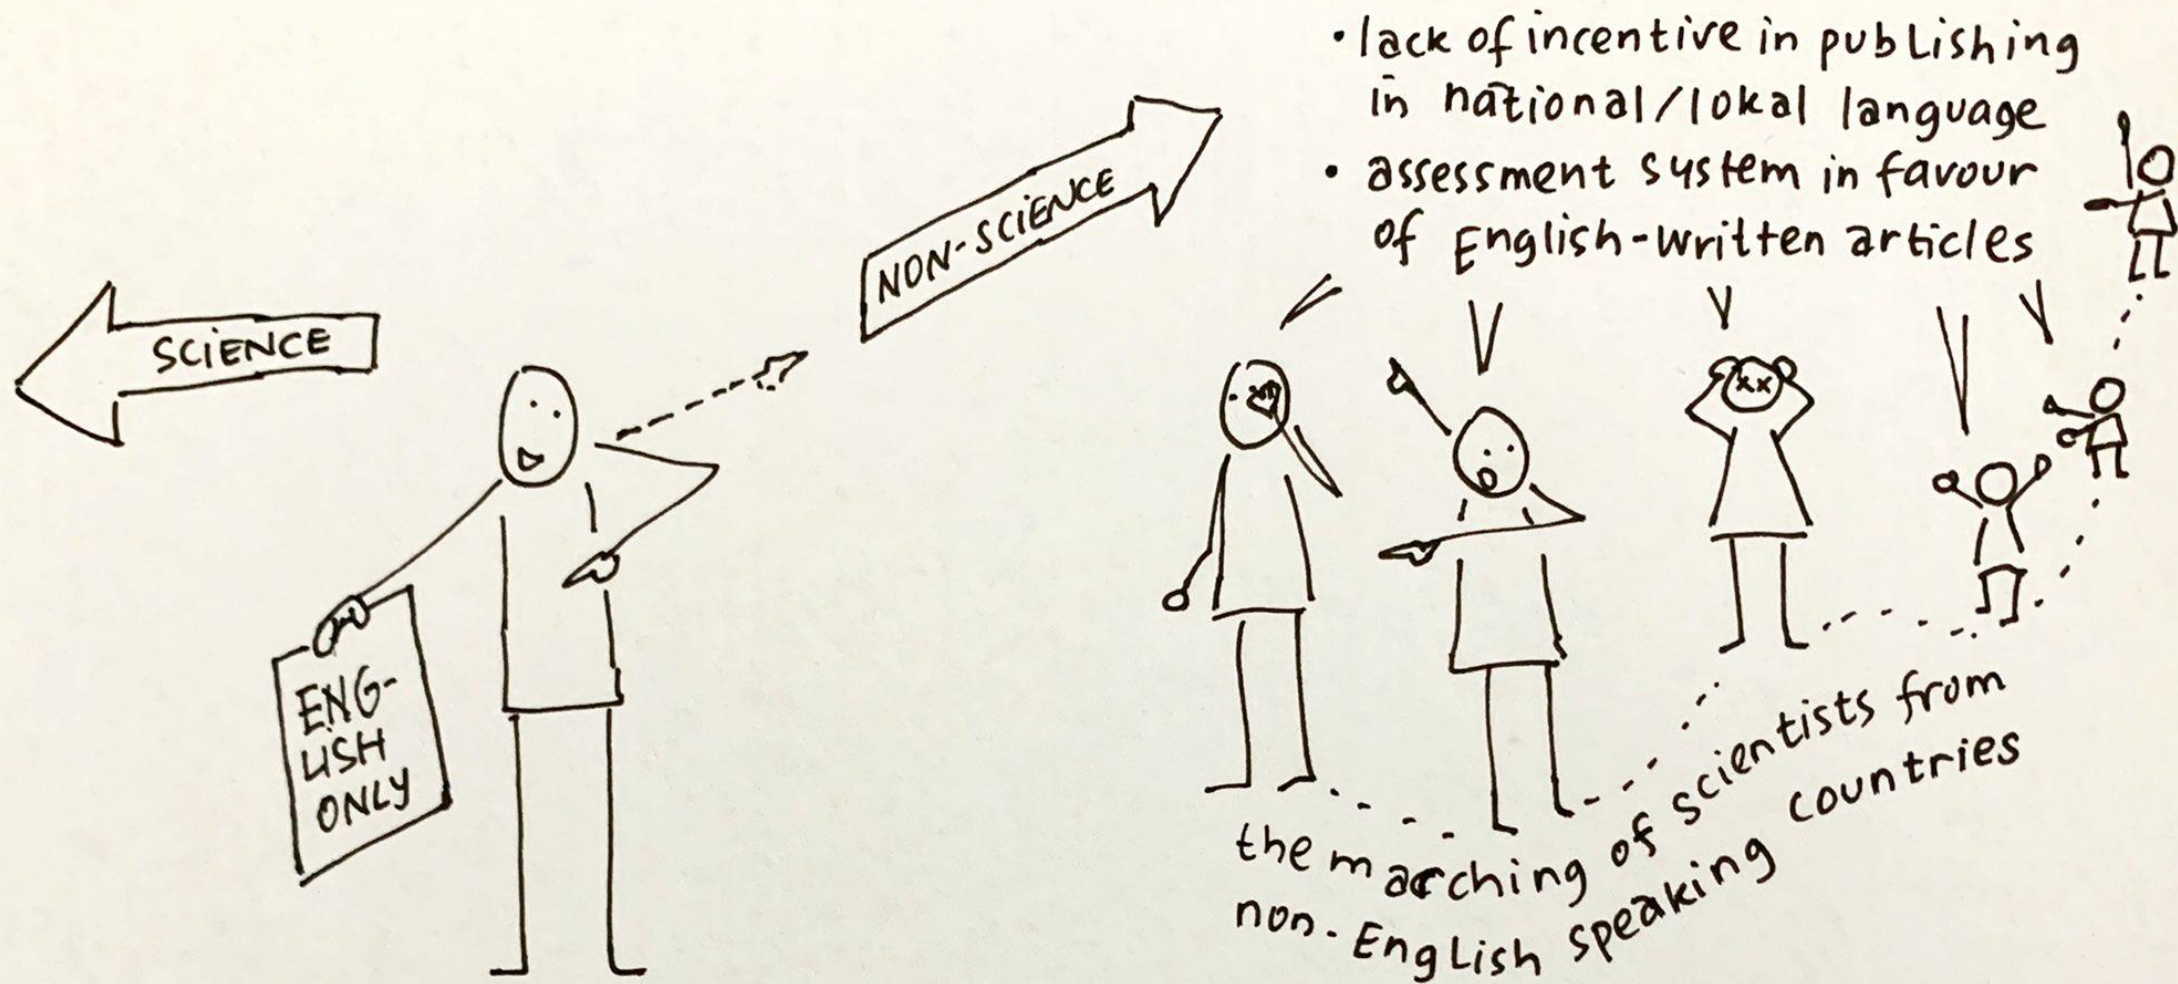 SCIENCE
NON-SCIENCE
ENG-
LISH
ONLY
• lack of incentive in publishing
in national/lokal language
• assessment system in favour
of English-written articles
the marching of scientists from
non-English speaking countries